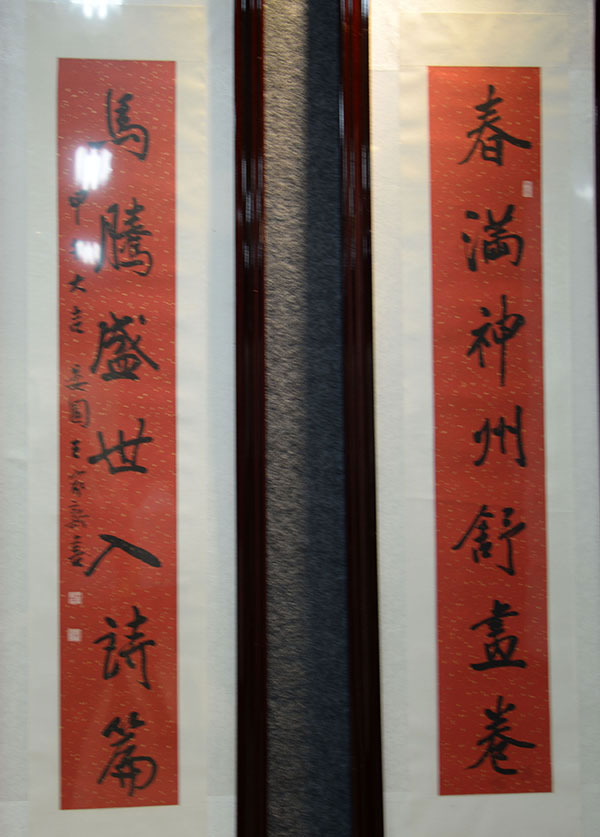 春滿神州舒畫卷
馬騰盛世入詩篇
甲午大吉